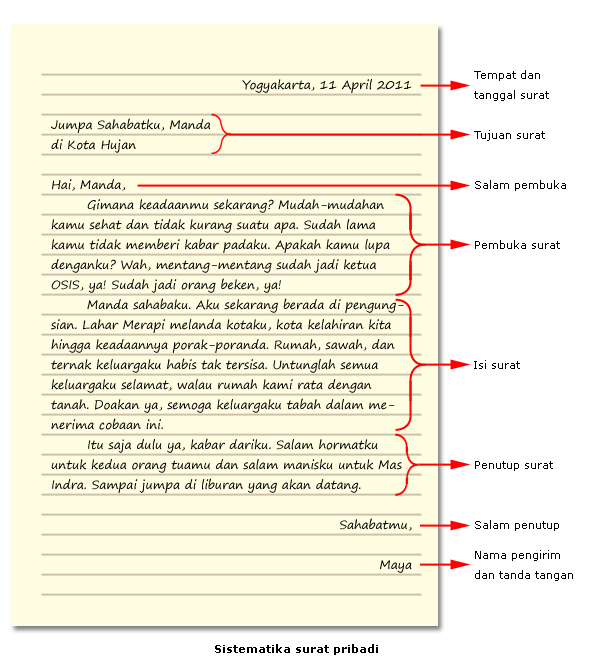 Yogyakarta, 11 April 2011
Tempat dan
tanggal surat
Jumpa Sahabatku, Manda
di Kota Hujan
Tujuan surat
Hai, Manda,
Salam pembuka
Gimana keadaanmu sekarang? Mudah-mudahan
kamu sehat dan tidak kurang suatu apa. Sudah lama
kamu tidak memberi kabar padaku. Apakah kamu lupa
denganku? Wah, mentang-mentang sudah jadi ketua
OSIS, ya! Sudah jadi orang beken, ya!
Pembuka surat
Manda sahabaku. Aku sekarang berada di pengung-
sian. Lahar Merapi melanda kotaku, kota kelahiran kita
hingga keadaannya porak-poranda. Rumah, sawah, dan
ternak keluargaku habis tak tersisa. Untunglah semua
keluargaku selamat, walau rumah kami rata dengan
tanah. Doakan ya, semoga keluargaku tabah dalam me-
nerima cobaan ini.
Isi surat
Itu saja dulu ya, kabar dariku. Salam hormatku
untuk kedua orang tuamu dan salam manisku untuk Mas
Indra. Sampai jumpa di liburan yang akan datang.
Penutup surat
Sahabatmu,
Salam penutup
Maya
Nama pengirim
dan tanda tangan
Sistematika surat pribadi